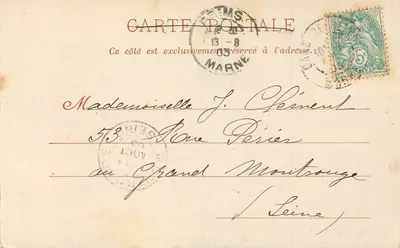 CARTE POSTALE
Ce côté est exclusivement réservé à l'adresse.
REIMS
13 - 8
03
MARNE
5
Mademoiselle J. Clément
53 Rue Périer
au Grand Montrouge
(Seine)
AOUT
03
SEINE